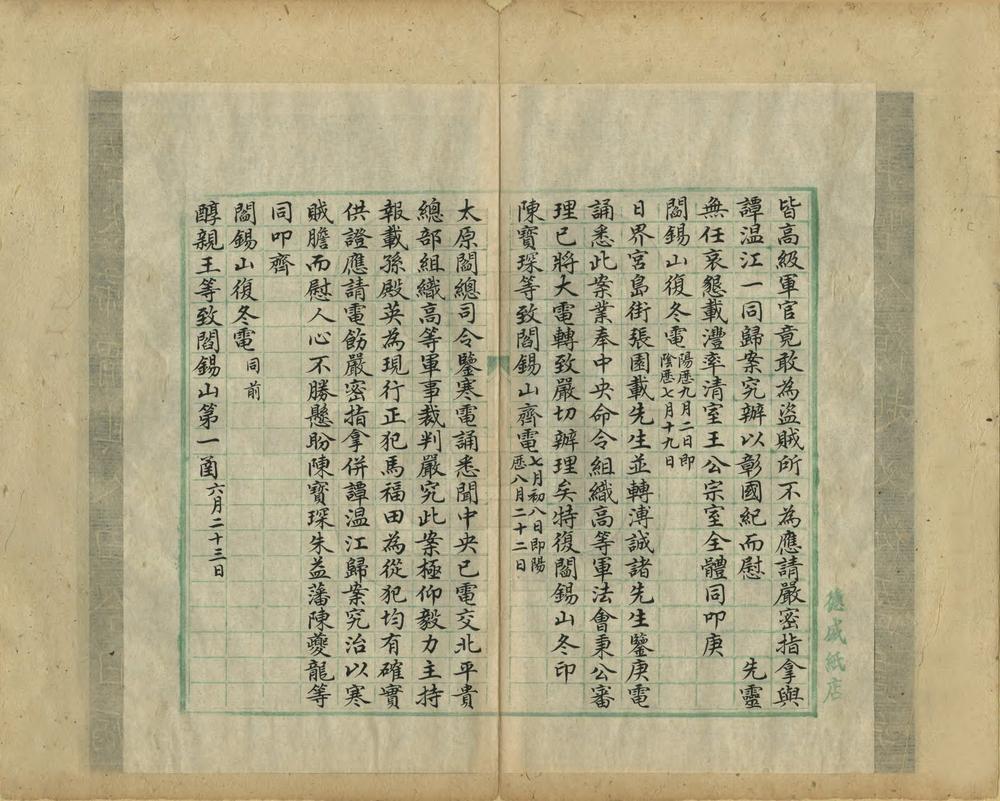 皆高級軍官竟敢為盜賊所不為應請嚴密指拿與
譚温江一同歸案究辦以彰國紀而慰　先靈
無任哀懇載灃率清室王公宗室全體同叩庚
閻錫山復冬電陽歷九月二日即陰歷七月十九日
日界宮島街張園載先生並轉溥誠諸先生鑒庚電
誦悉此案業奉中央命令組織高等軍法會秉公審
理已將大電轉致嚴切辦理矣特復閻錫山冬印
陳寶琛等致閻錫山齊電七月初八日即陽歷八月二十二日
太原閻總司令鑒寒電誦悉聞中央已電交北平貴
總部組織高等軍事裁判嚴究此案極仰毅力主持
報載孫殿英為現行正犯馬福田為從犯均有確實
供證應請電飭嚴密指拿併譚温江歸案究治以寒
賊膽而慰人心不勝懸盼陳寶琛朱益藩陳夔龍等
同叩齊
閻錫山復冬電同前
醇親王等致閻錫山第一函六月二十三日
德成紙店